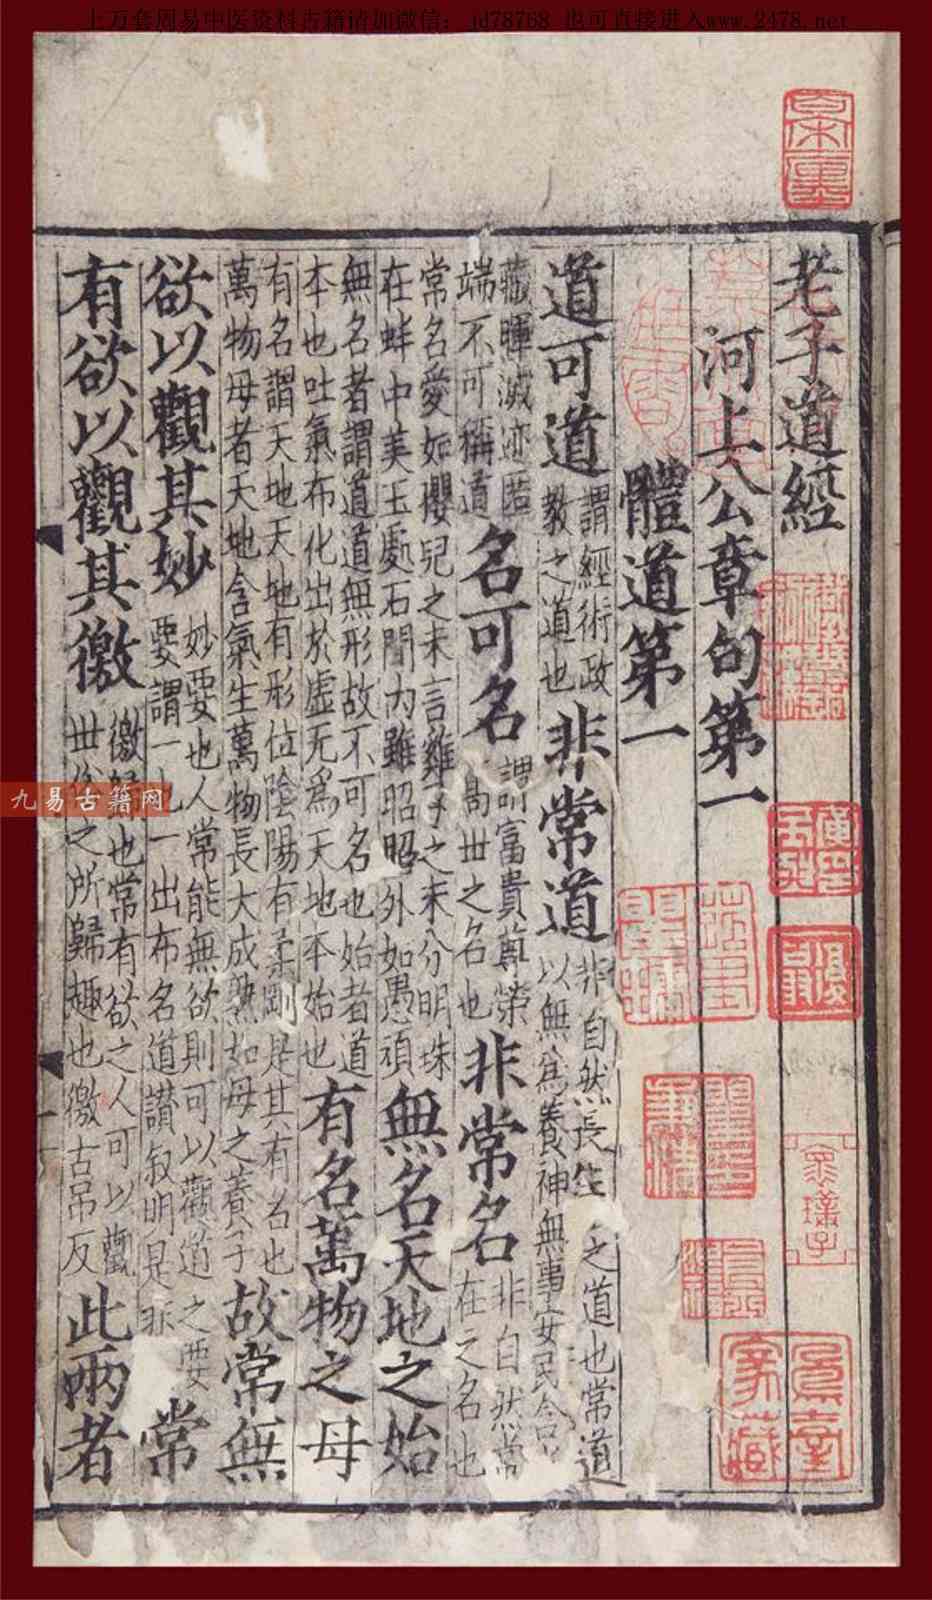 上万套周易中医资料古籍请加微信：jd78768 也可直接进入www.2478.net
老子道經
河上公章句第一
體道第一
道可道謂經術政教之道也非常道非自然長生之道也常道以無爲養神無事安民含光
藏暉滅迹匿端不可稱道名可名謂富貴尊榮髙丗之名也非常名非自然常在之名也
常名愛如櫻兒之未言雞子之未分明珠在蚌中美玉處石間内雖昭昭外如愚頑無名天地之始
無名者謂道道無形故不可名也始者道本也吐氣布化出於虛无爲天地本始也有名萬物之母
有名謂天地天地有形位陰陽有柔剛是其有名也萬物母者天地含氣生萬物長大成熟如母之養子故常無
欲以觀其妙妙要也人常能無欲則可以觀道之要要謂一也一出布名道讃叙明是非常
有欲以觀其徼徼歸也常有欲之人可以觀丗俗之所歸趣也徼古吊反此兩者
九易古籍网